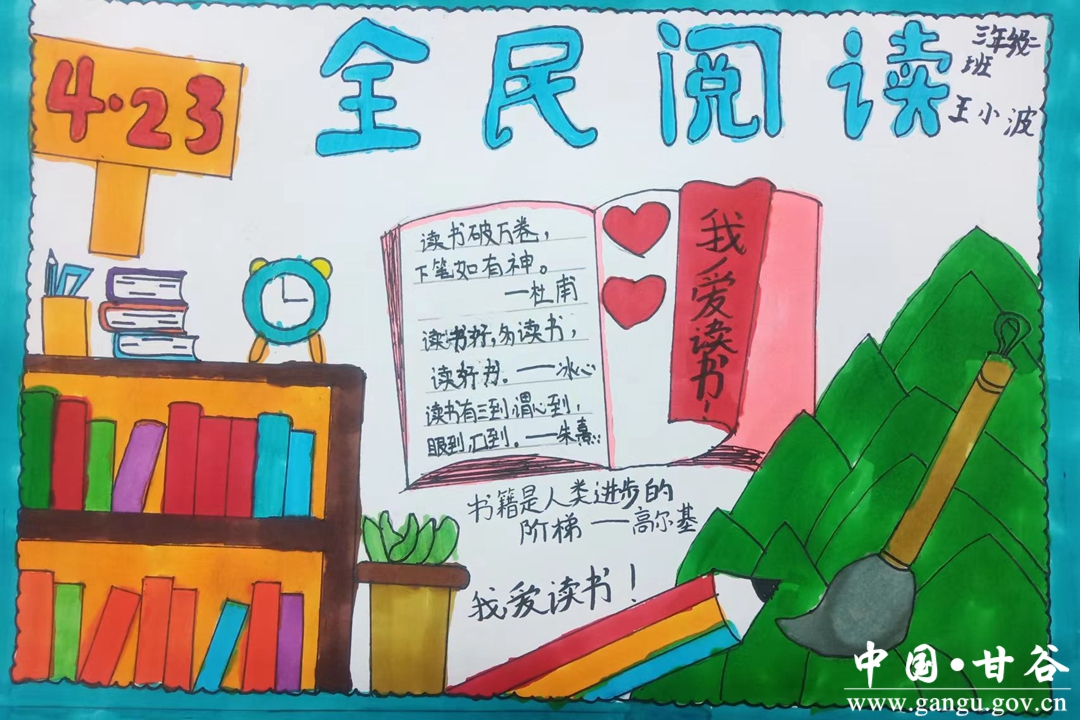 4·23
全民阅读
三年级二
班
王小波
读书破万卷，
下笔如有神。
—杜甫
读书好，多读书，
读好书。——冰心
读书有三到谓心到，
眼到 口到。——朱熹
我爱读书！
书籍是人类进步的
阶梯 ——高尔基
我爱读书！
中国·甘谷
www.gangu.gov.cn